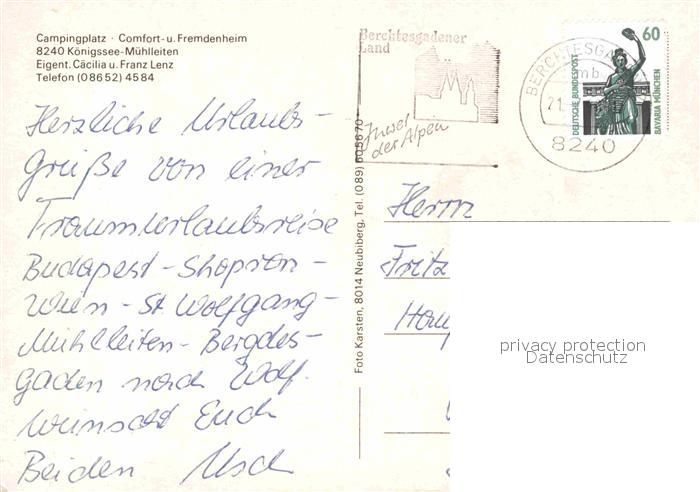 Campingplatz · Comfort- u. Fremdenheim
8240 Königssee-Mühlleiten
Eigent. Cäcilia u. Franz Lenz
Telefon (08652) 4584
Herzliche Urlaubs-
Grüße von einer
Traumurlaubsreise
Budapest - Shopron -
Wien - St. Wolfgang -
Mühlleiten - Bergdes-
gaden nach Wolf.
Wünscht Euch
Beiden
Foto Karsten, 8014 Neubiberg, Tel. (089) 605670
Berchtesgadener
Land
Insel
der Alpen
BERCHTESGA
mb
21.
8240
60
DEUTSCHE BUNDESPOST
BAVARIA MÜNCHEN
Herrn
Fritz
privacy protection
Datenschutz